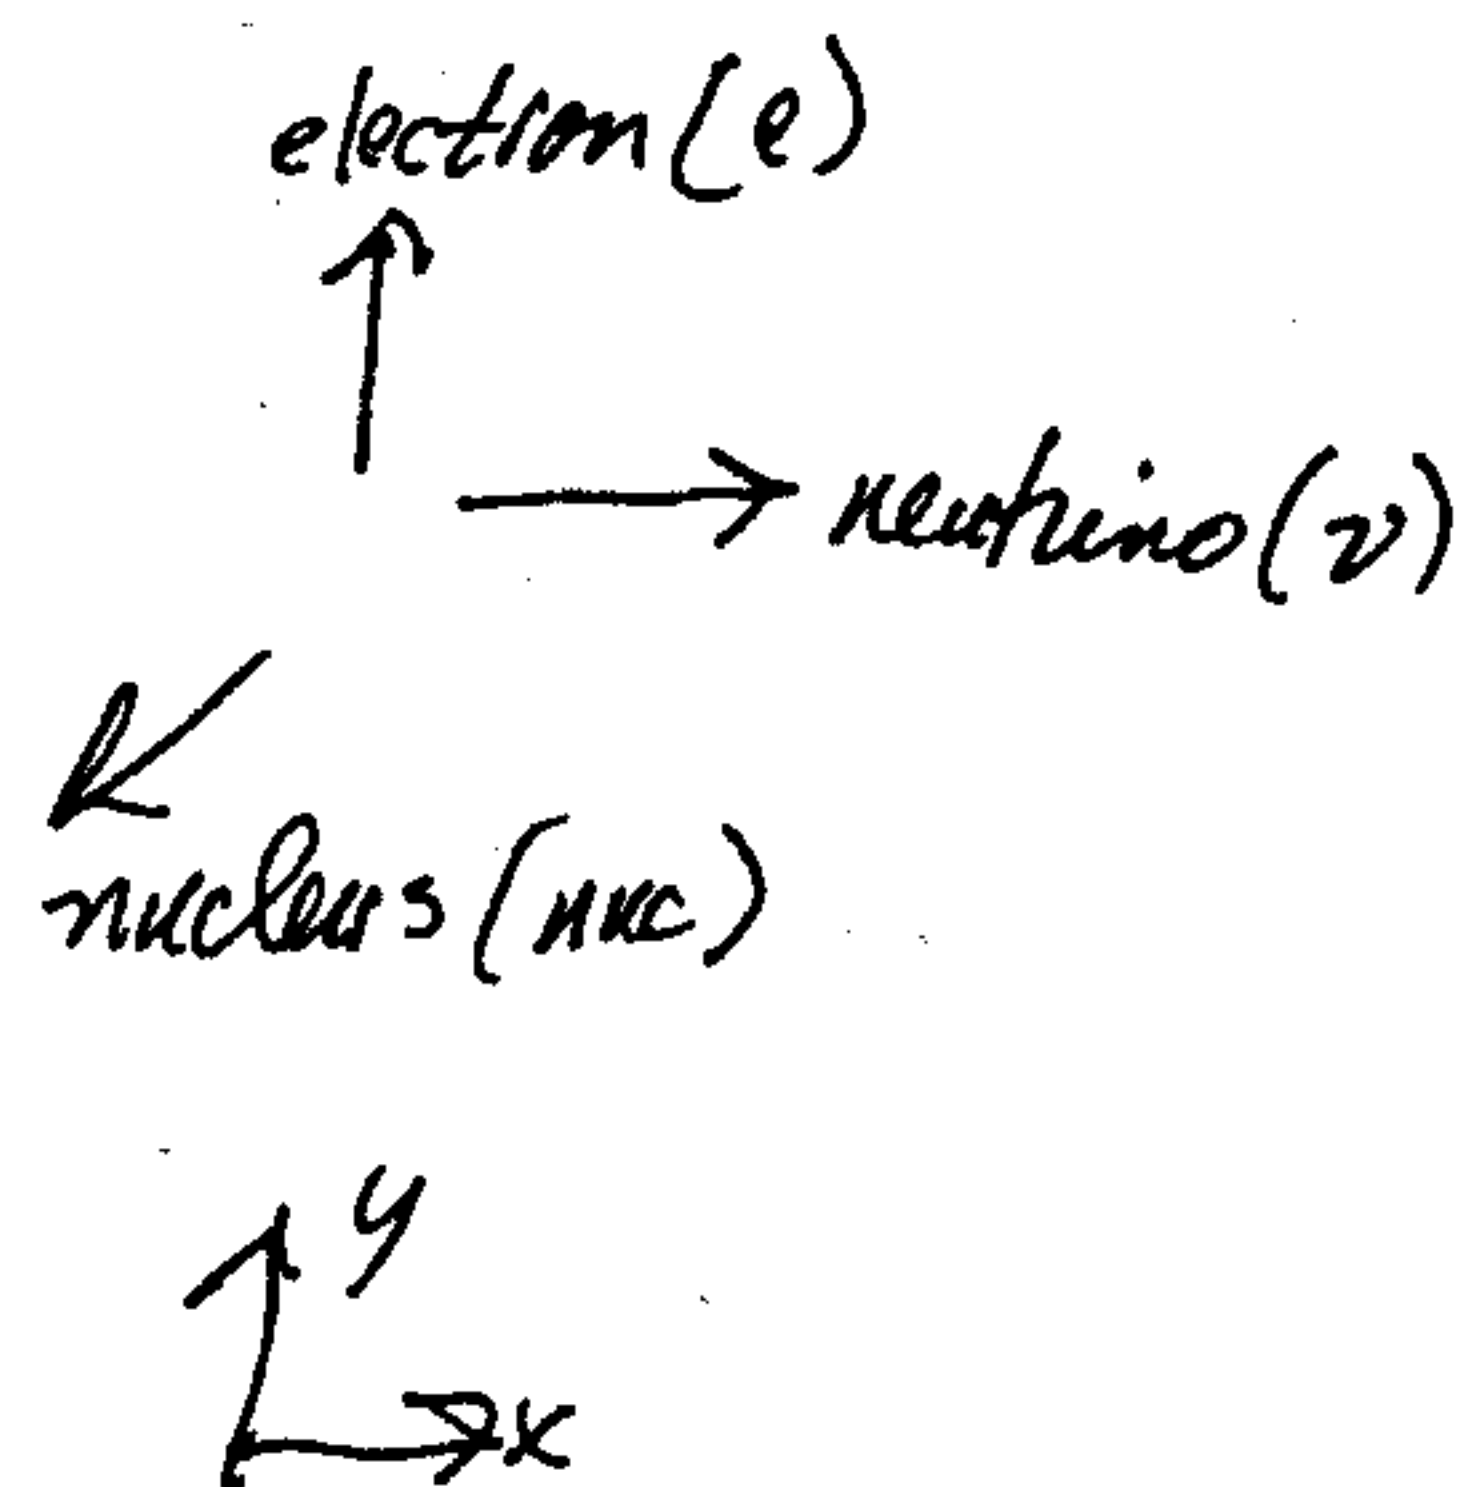 electron (e)
neutrino (ν)
nucleus (nuc)
y
x